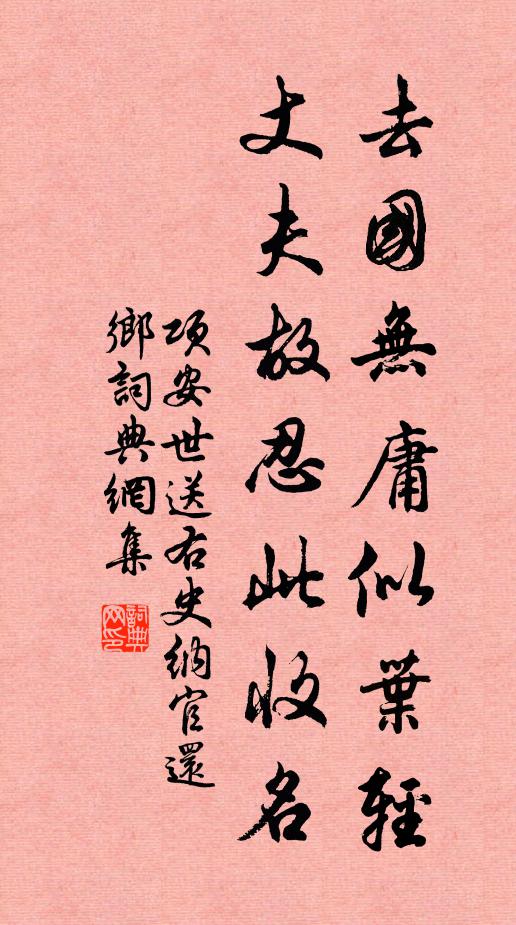 去國無庸似葉輕
丈夫故忍此收名
項安世送右史納官還
鄉詞典網集
詞典网印